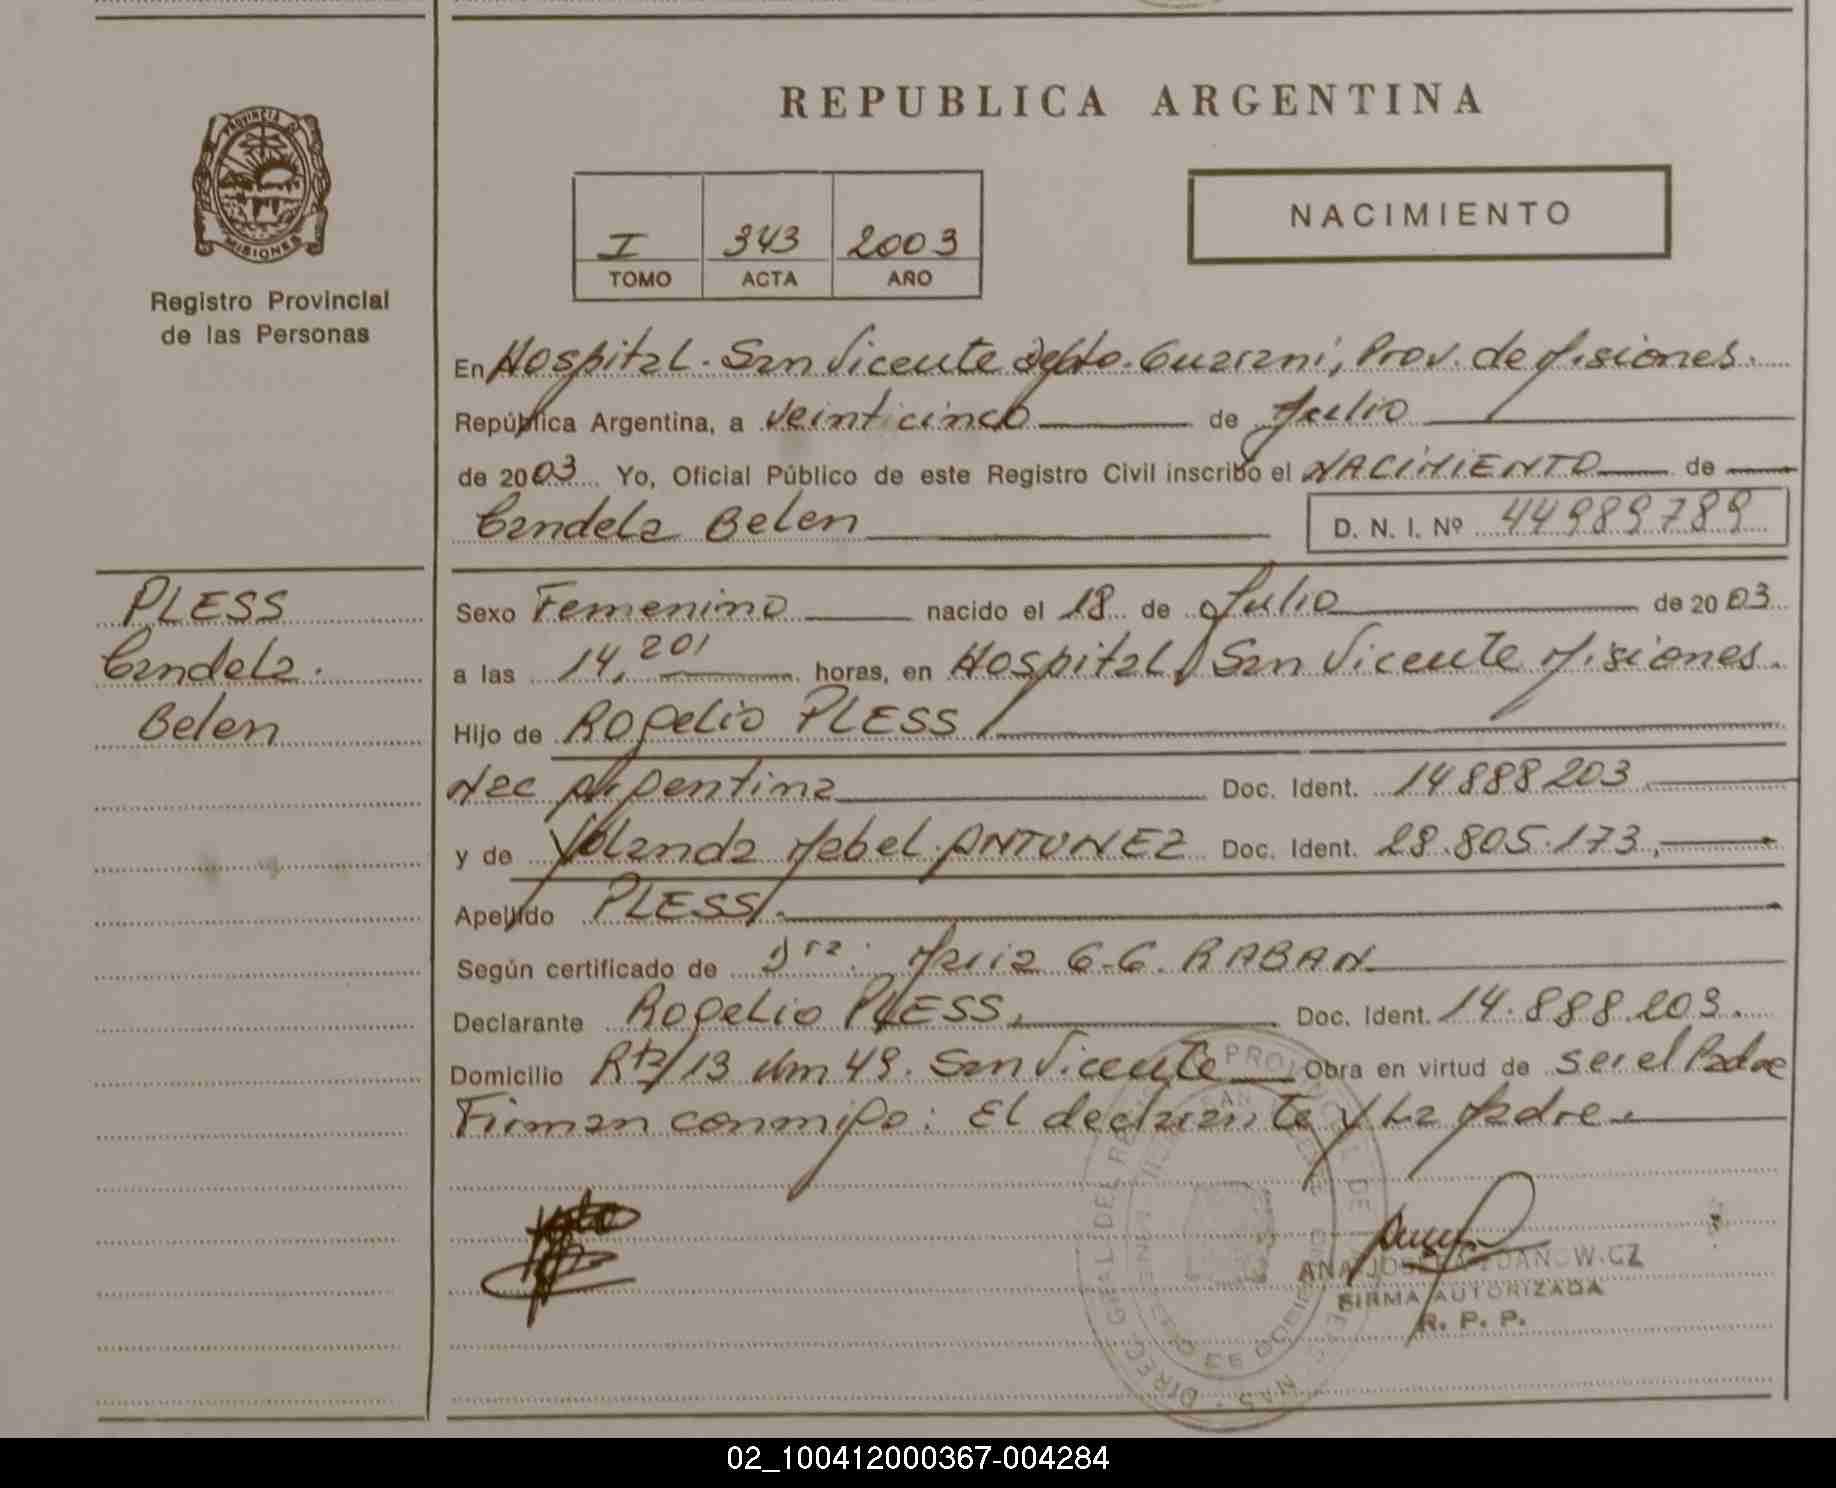 REPUBLICA ARGENTINA
PROVINCIA DE
MISIONES
Registro Provincial
de las Personas
I 343 2003
TOMO ACTA AÑO
NACIMIENTO
En Hospital. San Vicente Depto. Guarani, Prov. de Misiones.
República Argentina, a veinticinco de Julio
de 2003 Yo, Oficial Público de este Registro Civil inscribo el NACIMIENTO de
Candela Belen D. N. I. Nº 44989789
PLESS
Candela.
Belen
Sexo Femenino nacido el 18 de Julio de 2003
a las 14,20' horas, en Hospital, San Vicente Misiones.
Hijo de Rogelio PLESS
Nac Argentina Doc. Ident. 14888203
y de Yolanda Mabel ANTUNEZ Doc. Ident. 28.805.173,
Apellido PLESS.
Según certificado de Dra: Maria G.G. RABAN
Declarante Rogelio PLESS, Doc. Ident. 14.888.203.
Domicilio Rta/13 Km 49. San Vicente Obra en virtud de ser el Padre
Firman conmigo: El declarante y La Madre.
FIRMA AUTORIZADA
R. P. P.
02_100412000367-004284